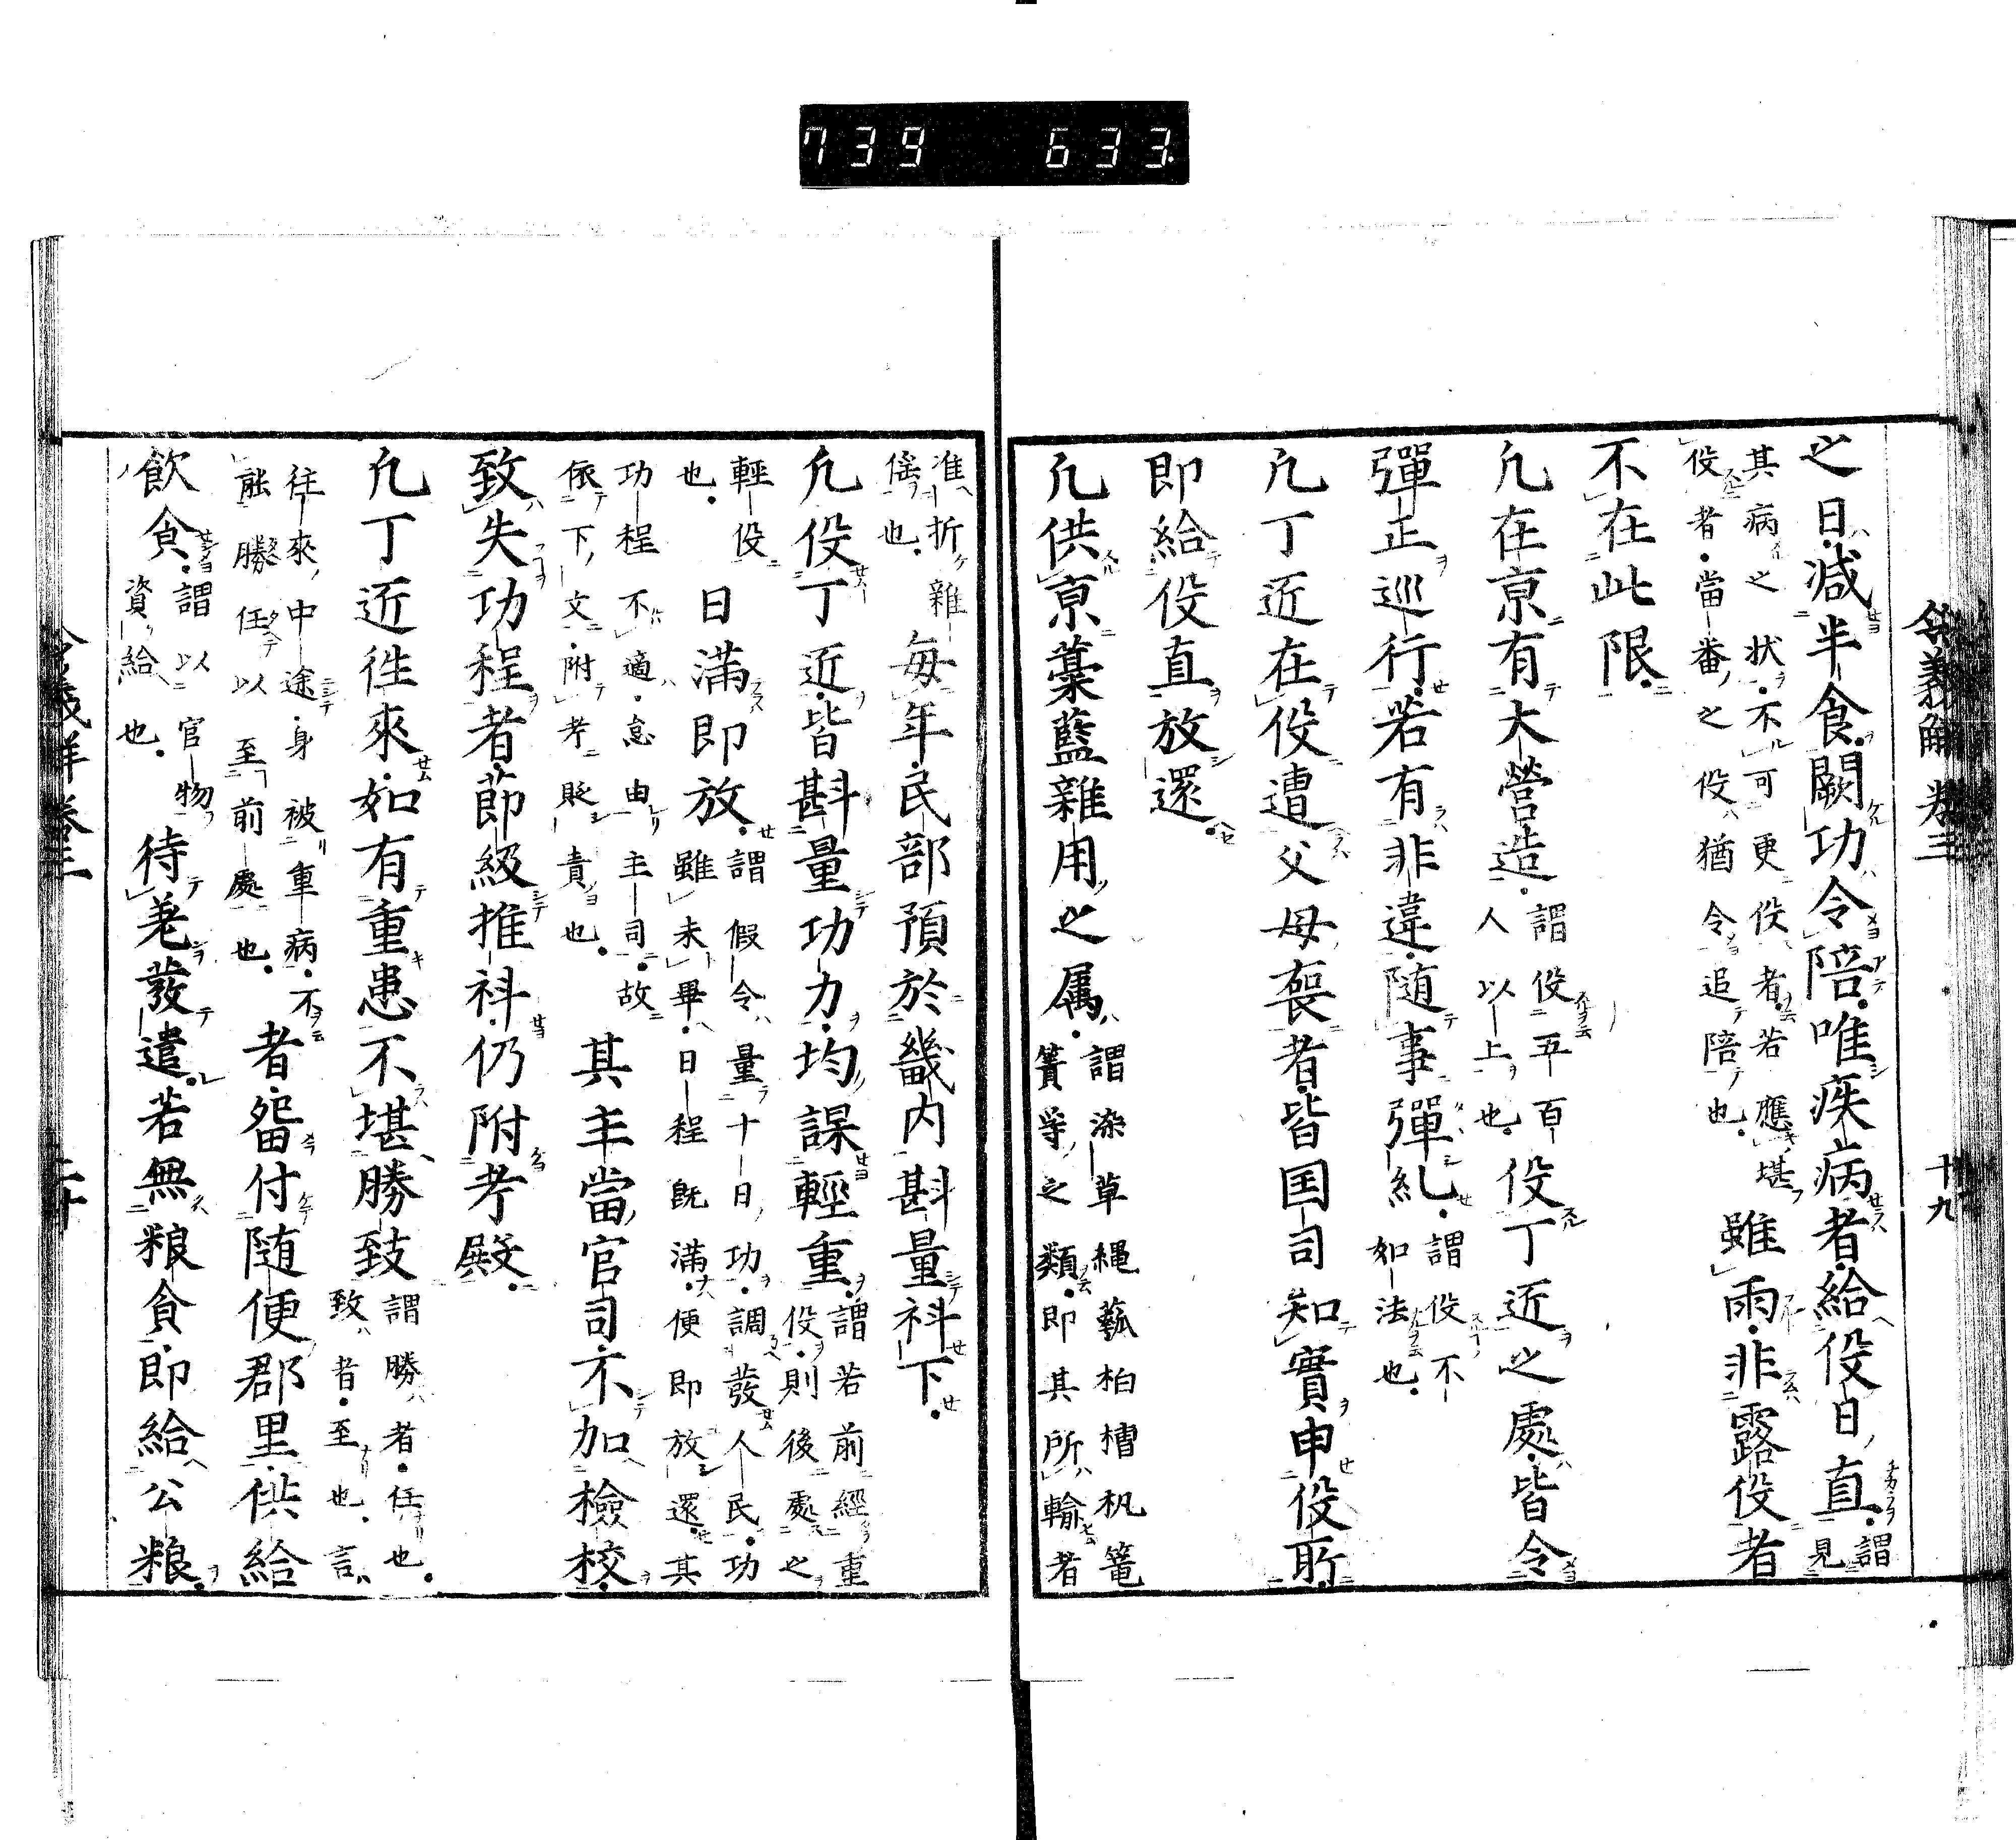 739 633
令義解 卷三 十九
之日減半食闕功令陪唯疾病者給役日直謂見
其病之状不可更役者若應堪
役者當番之役猶令追陪也雖雨非露役者
不在此限
凢在京有大營造謂役五百
人以上也役丁近之處皆令
彈正巡行若有非違随事彈糺謂役不
如法也
凢丁近在役遭父母喪者皆国司知實申役所
即給役直放還
凢供京藁藍雜用之属謂染草縄藝柏槽杋篭
簀等之類即其所輸者
准折雜
徭也毎年民部預於畿内斟量科下
凢役丁近皆斟量功力均課輕重謂若前經重
役則後處之
輕役
也日満即放謂假令量十日功調發人民功
雖未畢日程既満便即放還其
功程不適怠由主司故
依下文附考貶責也其丰當官司不加檢校
致失功程者莭級推科仍附考殿
凢丁近徃來如有重患不堪勝致謂勝者任也
致者至也言
往來中途身被重病不
能勝任以至前處也者留付随便郡里供給
飲食謂以官物
資給也待差發遣若無粮食即給公粮
令義解 卷三 二十